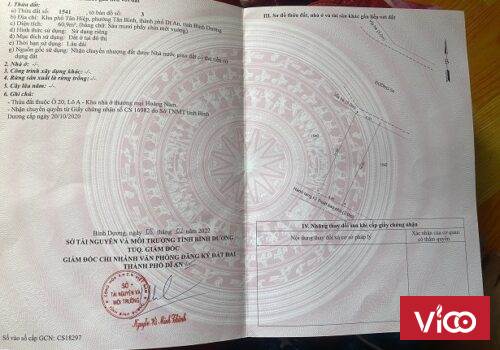 1. Thửa đất:
a) Thửa đất số: 1541, tờ bản đồ số: 3
b) Địa chỉ: Khu phố Tân Hiệp, phường Tân Bình, thành phố Dĩ An, tỉnh Bình Dương
c) Diện tích: 60,9m², (bằng chữ: Sáu mươi phẩy chín mét vuông)
d) Hình thức sử dụng: Sử dụng riêng
đ) Mục đích sử dụng: Đất ở tại đô thị
e) Thời hạn sử dụng: Lâu dài
g) Nguồn gốc sử dụng: Nhận chuyển nhượng đất được Nhà nước giao đất có thu tiền sử
dụng đất
2. Nhà ở: -/-
3. Công trình xây dựng khác: -/-
4. Rừng sản xuất là rừng trồng: -/-
5. Cây lâu năm: -/-
6. Ghi chú:
- Thửa đất thuộc Ô 20, Lô A - Khu nhà ở thương mại Hoàng Nam.
- Nhận chuyển quyền từ Giấy chứng nhận số CS 16982 do Sở TNMT tỉnh Bình
Dương cấp ngày 20/10/2020
Bình Dương, ngày tháng 02 năm 2022
SỞ TÀI NGUYÊN VÀ MÔI TRƯỜNG TỈNH BÌNH DƯƠNG
TUQ. GIÁM ĐỐC
GIÁM ĐỐC CHI NHÁNH VĂN PHÒNG ĐĂNG KÝ ĐẤT ĐAI
THÀNH PHỐ DĨ AN
SỞ
TÀI NGUYÊN VÀ
MÔI TRƯỜNG
Nguyễn Vũ Minh Thành
Số vào sổ cấp GCN: CS18297
III. Sơ đồ thửa đất, nhà ở và tài sản khác gắn liền với đất
ĐƯỜNG
1541
IV. Những thay đổi sau khi cấp giấy chứng nhận
Nội dung thay đổi và cơ sở pháp lý
Xác nhận của cơ quan
có thẩm quyền
ViCO